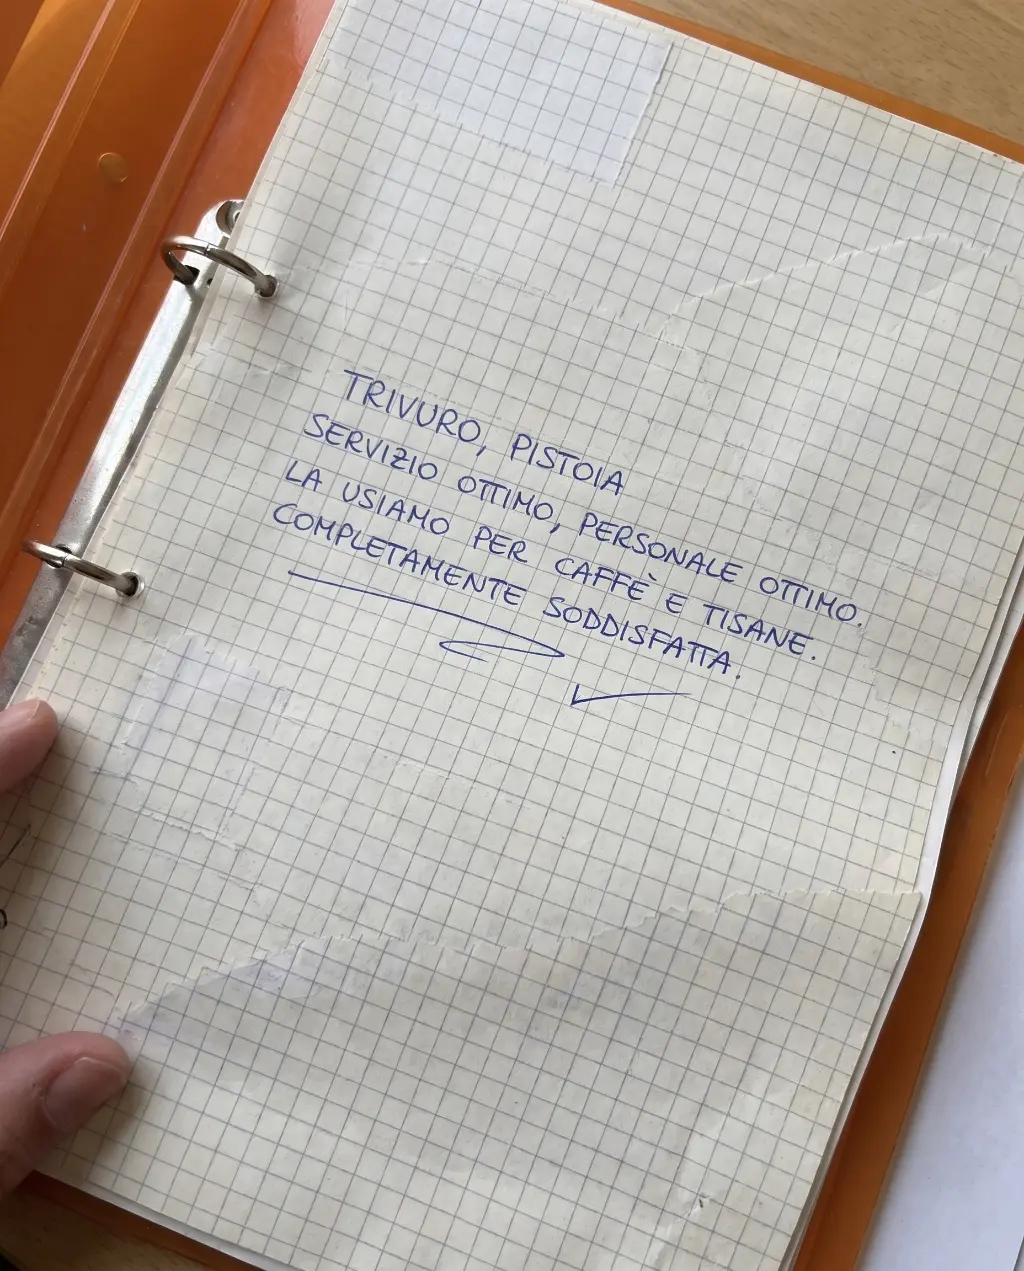 TRIVURO, PISTOIA
SERVIZIO OTTIMO, PERSONALE OTTIMO.
LA USIAMO PER CAFFÈ E TISANE.
COMPLETAMENTE SODDISFATTA.